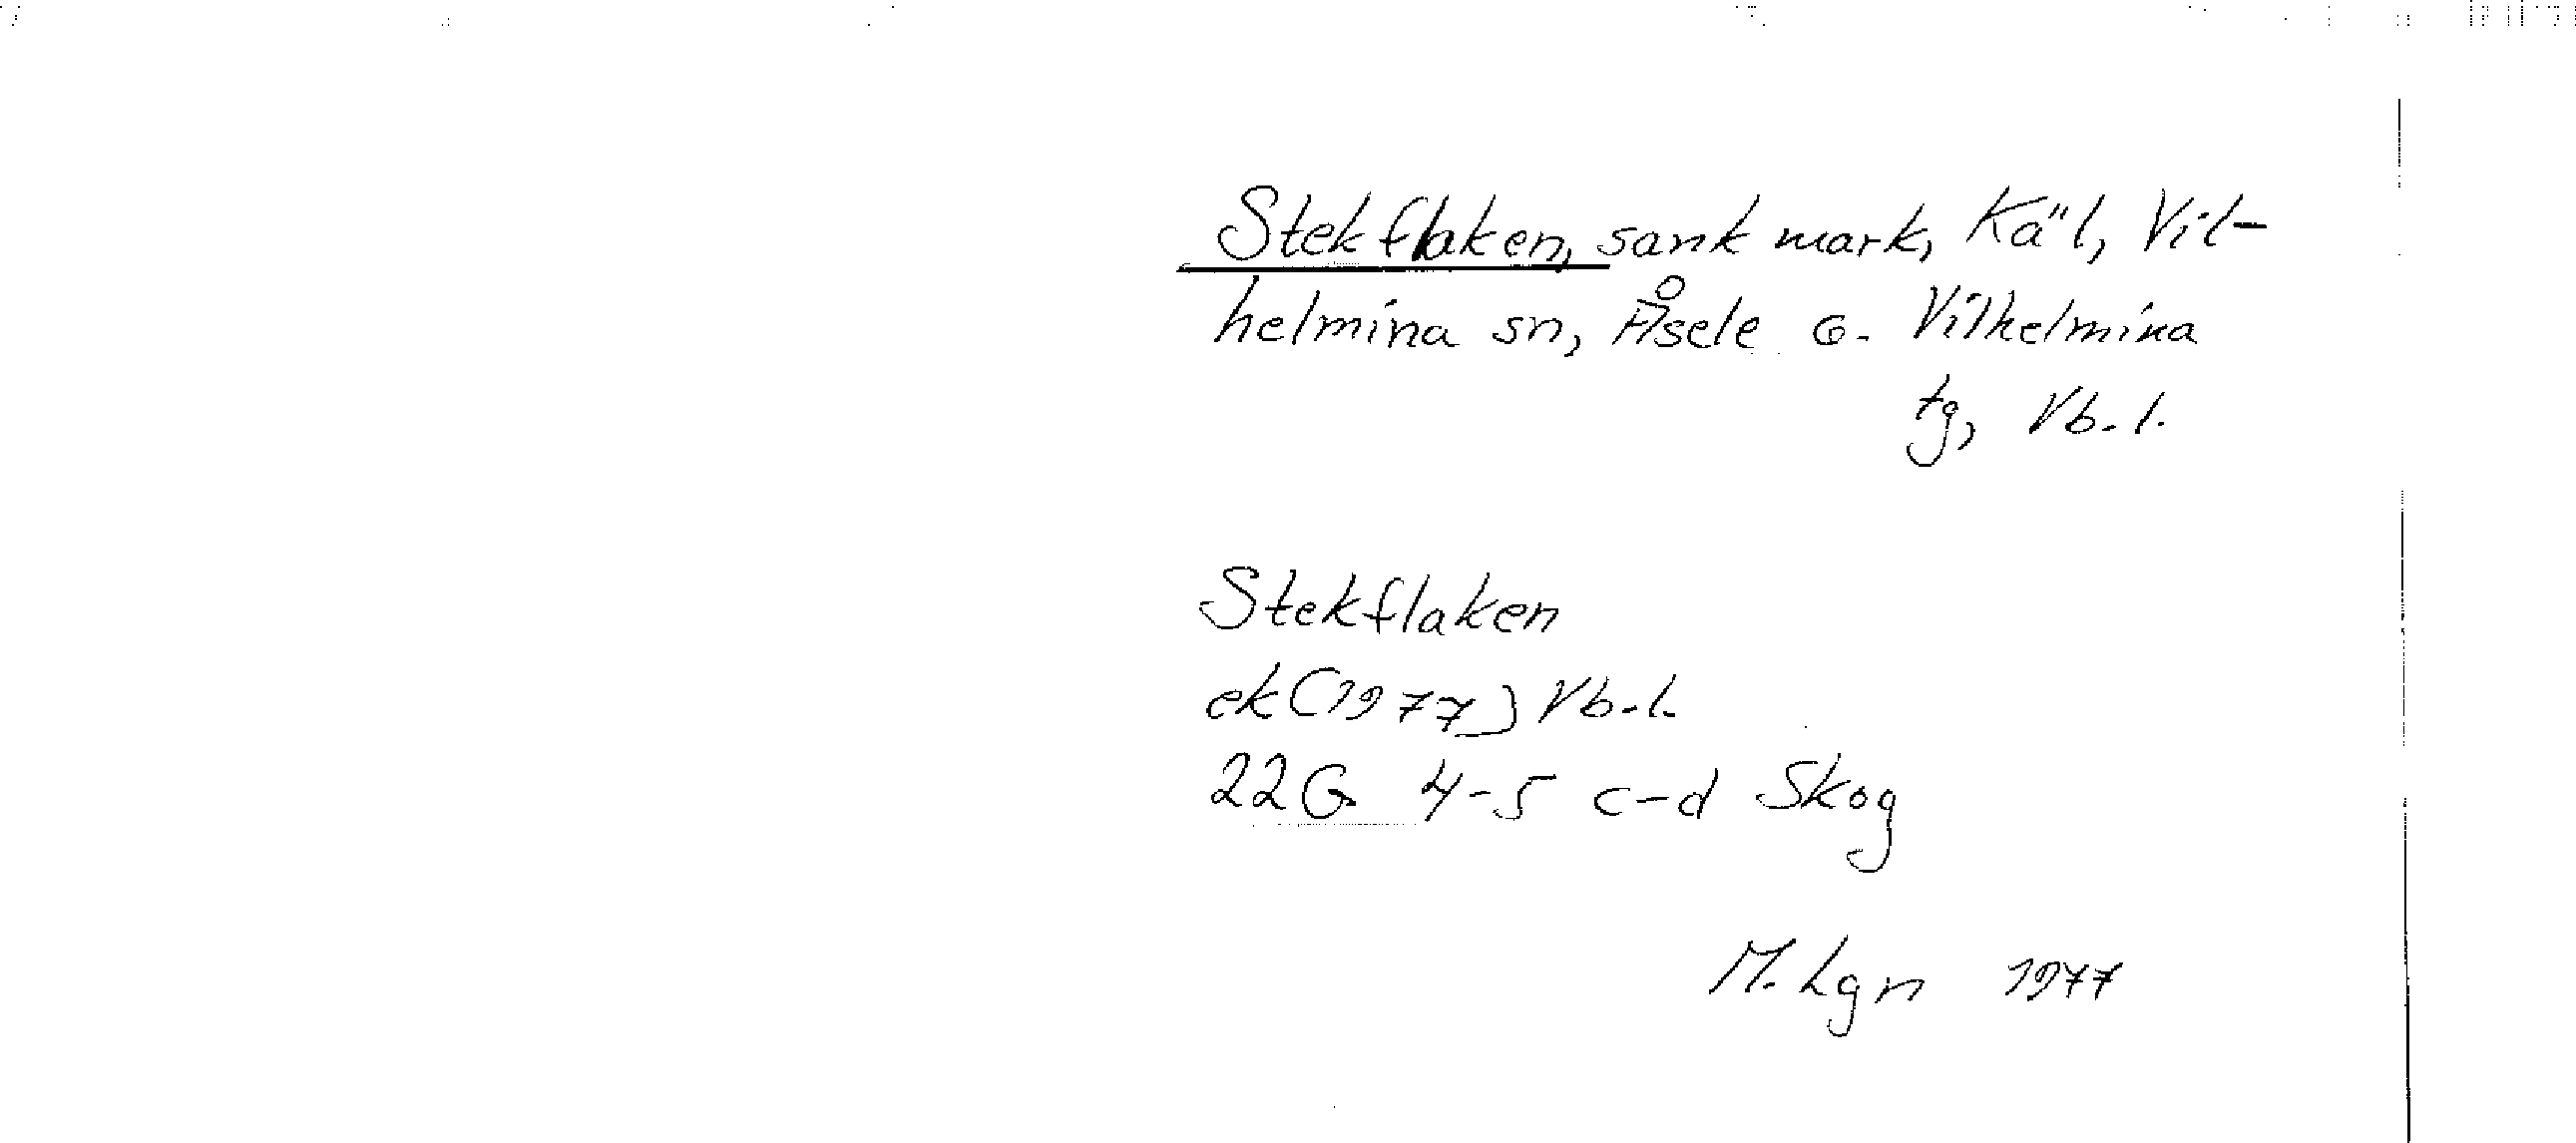 Stekflaken, sank mark, Käl, Vil-
helmina sn, Åsele o. Vilhelmina
tg, Vb. l.
Stekflaken
ek (1977) Vb. l.
22G 4-5 c-d Skog
M. Lgn 1977